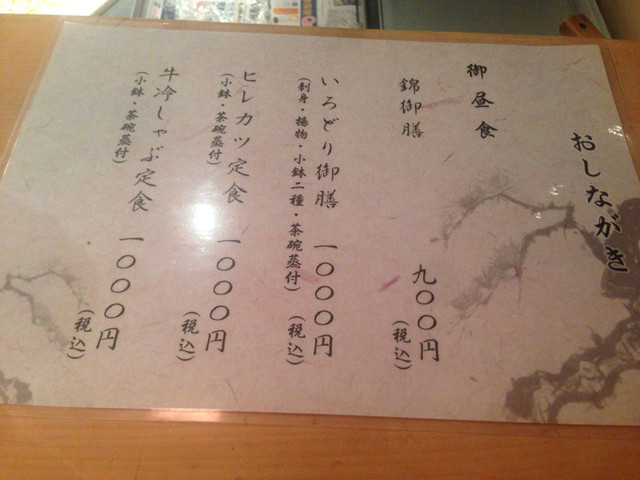 おしながき
御昼食
錦御膳 九〇〇円
(税込)
いろどり御膳 一〇〇〇円
(刺身・揚物・小鉢二種・茶碗蒸付) (税込)
ヒレカツ定食 一〇〇〇円
(小鉢・茶碗蒸付) (税込)
牛冷しゃぶ定食 一〇〇〇円
(小鉢・茶碗蒸付) (税込)